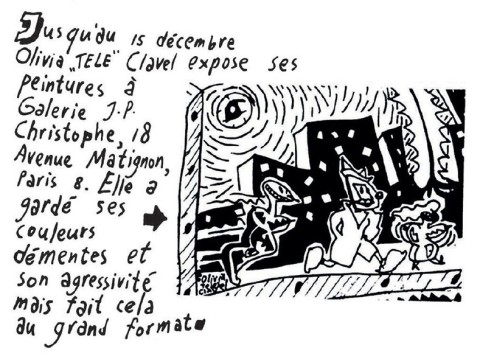 Jusqu'au 15 décembre
Olivia "TELE" Clavel expose ses
peintures à
Galerie J.P.
Christophe, 18
Avenue Matignon,
Paris 8. Elle a
gardé ses
couleurs
démentes et
son agressivité
mais fait cela
au grand format
Olivia
TELE
Clavel